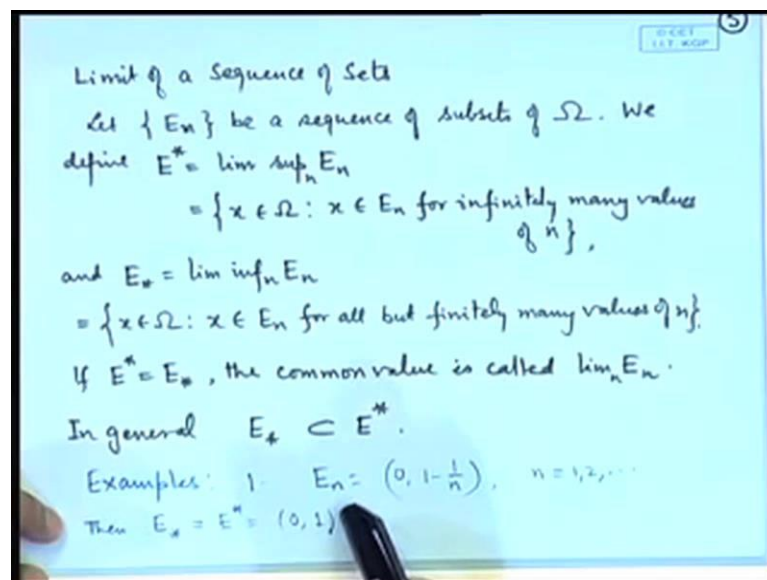 5
Limit of a Sequence of Sets
Let {En} be a sequence of subsets of Ω. We
define E* = lim supₙ Eₙ
= {x ∈ Ω : x ∈ Eₙ for infinitely many values
of n},
and E⁎ = lim infₙ Eₙ
= {x ∈ Ω : x ∈ Eₙ for all but finitely many values of n}.
If E* = E⁎, the common value is called limₙ Eₙ.
In general E⁎ ⊂ E*.
Examples: 1. Eₙ = (0, 1 - 1/n), n = 1, 2, ...
Then E⁎ = E* = (0, 1)